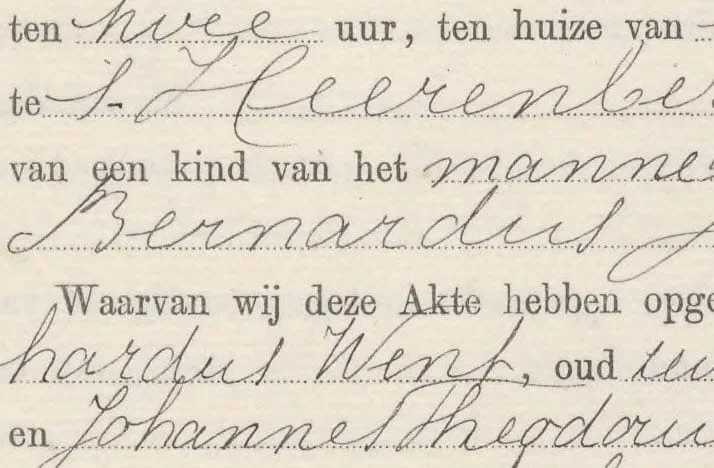 ten twee uur, ten huize van
te 's-Heerenbe
van een kind van het manne
Bernardus J
Waarvan wij deze Akte hebben opge
hardus Went, oud
en Johannes Theodoru